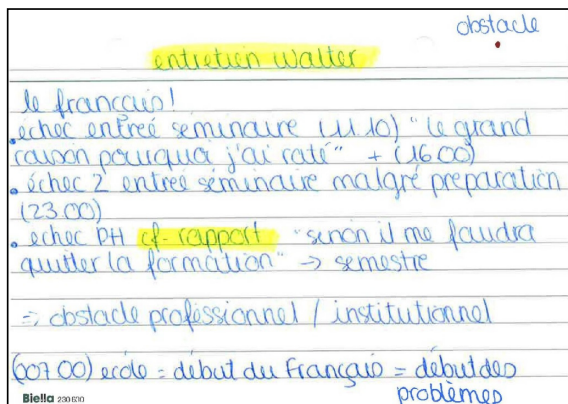 obstacle
entretien Walter
le français!
. echec entreé séminaire (11.10) "le grand
raison pourquoi j'ai raté" + (16 00)
. échec 2 entreé séminaire malgré preparation
(23.00)
. echec PH cf. rapport "sinon il me faudra
quitter la formation" → semestre
=> obstacle proféssionnel / institutionnel
(00700) ecole = début du Français = début des
problèmes
Biella 230 630